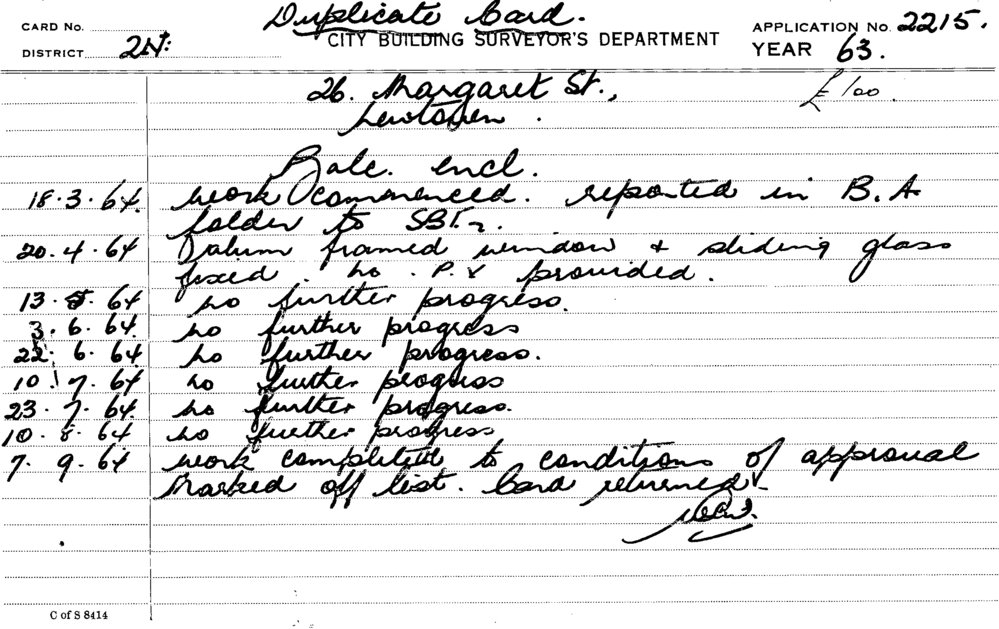 Duplicate Card.
CARD No.
CITY BUILDING SURVEYOR'S DEPARTMENT
APPLICATION No. 2215.
DISTRICT 2N.
YEAR 63.
26. Margaret St., £100.
Newtown.
Balc. encl.
18.3.64. work commenced. reported in B.A
folder to
20.4.64 alum framed window & sliding glass
fixed. no. P.V provided.
13.5.64 no further progress.
3.6.64. no further progress
22.6.64 no further progress.
10.7.64 no further progress
23.7.64. no further progress.
10.8.64 no further progress
7.9.64 work completed to conditions of approval
marked off list. Card returned
C of S 8414